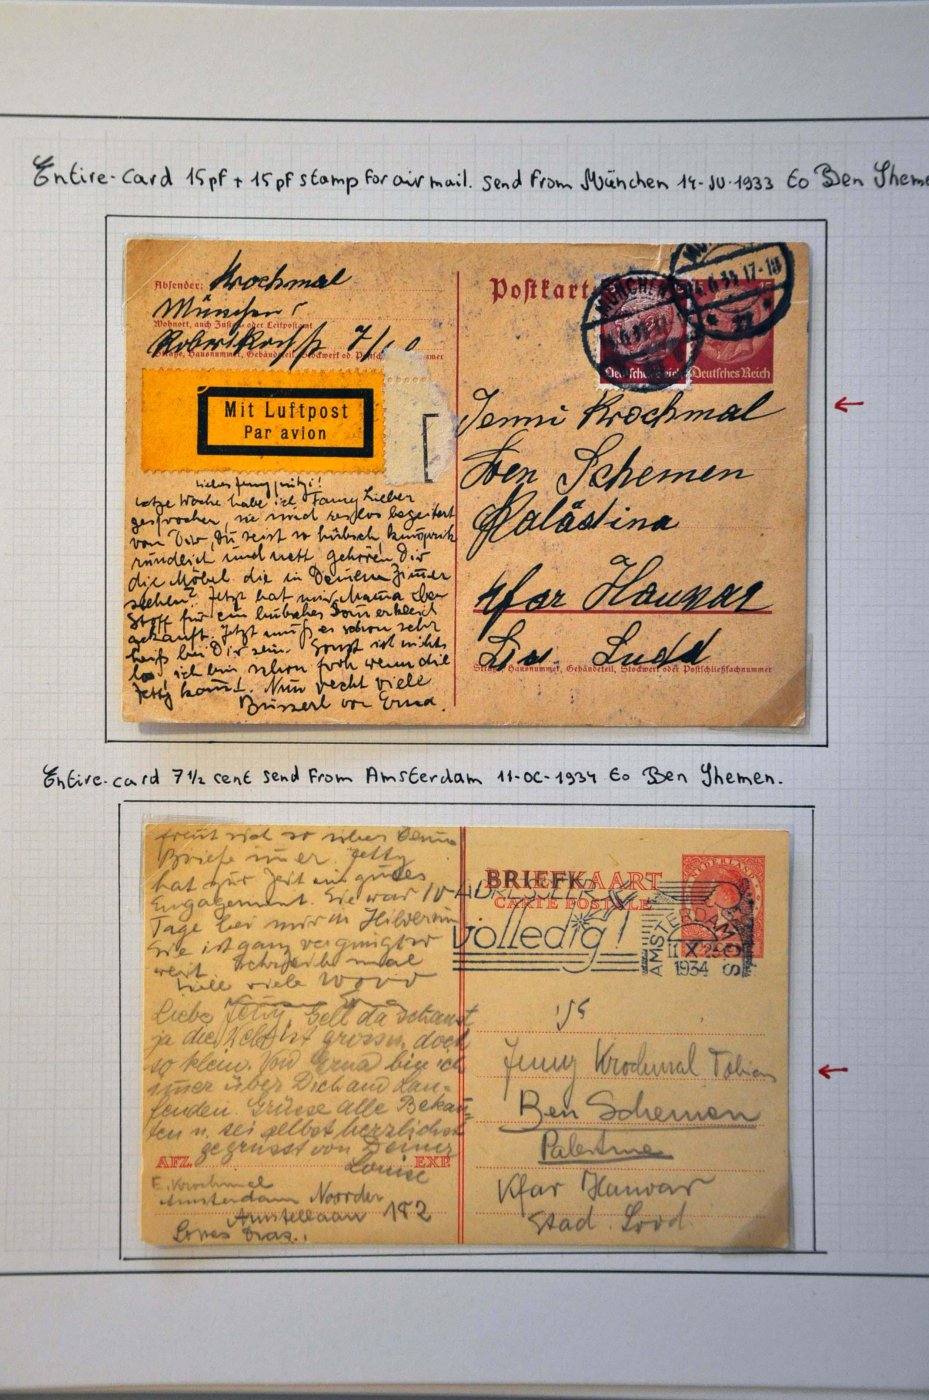 Entire-card 15pf + 15pf stamp for air mail. send from München 14-JU-1933 to Ben Sheme
Absender: Krochmal
München
Wohnort, auch Zustell- oder Leitpostamt
Robert Koch 7/
Straße, Hausnummer, Gebäudeteil, Stockwerk od. Postsch
Mit Luftpost
Par avion
Postkart
MÜNCHEN
6.34.17-18
Deutsches Reich
Deutsches Reich
Jenni Krochmal
Ben Schemen
Palästina
Kfar Hanoar
Lud
Straße, Hausnummer, Gebäudeteil, Stockwerk oder Postschließfachnummer
Letzte Woche habe ich Fanny Lieber
gesprochen, sie und restlos begeistert
von Dir, Du seist so hübsch
und nett. gehören Dir
die Möbel die in Deinem Zimmer
stehen? Jetzt hat mir Mama
Stoff für ein hübsches Sommerkleid
gekauft. Jetzt muß es schon sehr
heiß bei Dir sein. Sonst ist nichts
los, ich bin schon froh wenn die
Jetty kommt. Nun recht viele
Busserl von Erna.
Entire-card 7 1/2 cent send from Amsterdam 11-OC-1934 to Ben Shemen.
freut sich so über Deine
Briefe immer. Jetty
hat zur Zeit ein gutes
Engagement. Sie war 10
Tage bei mir in Hilversum
Sie ist ganz vergnügt so
weit. Schreib mal
Liebe Jenny, Gell da schaust
ja die Welt ist gross u. doch
so klein. Von Erna bin ich
immer über Dich auf Lau-
fenden. Grüsse alle Bekan-
ten u. sei selbst herzlichst
gegrüsst von Deiner
Louise
AFZ.
EXP.
E. Krochmal
Amsterdam Noorder
Amstellaan 182
BRIEFKAART
CARTE POSTALE
NEDERLAND
volledig!
AMSTERDAM
11 X
1934
Jenny Krochmal Tobias
Ben Schemen
Palestine
Kfar Hanoar
Stad. Lood.